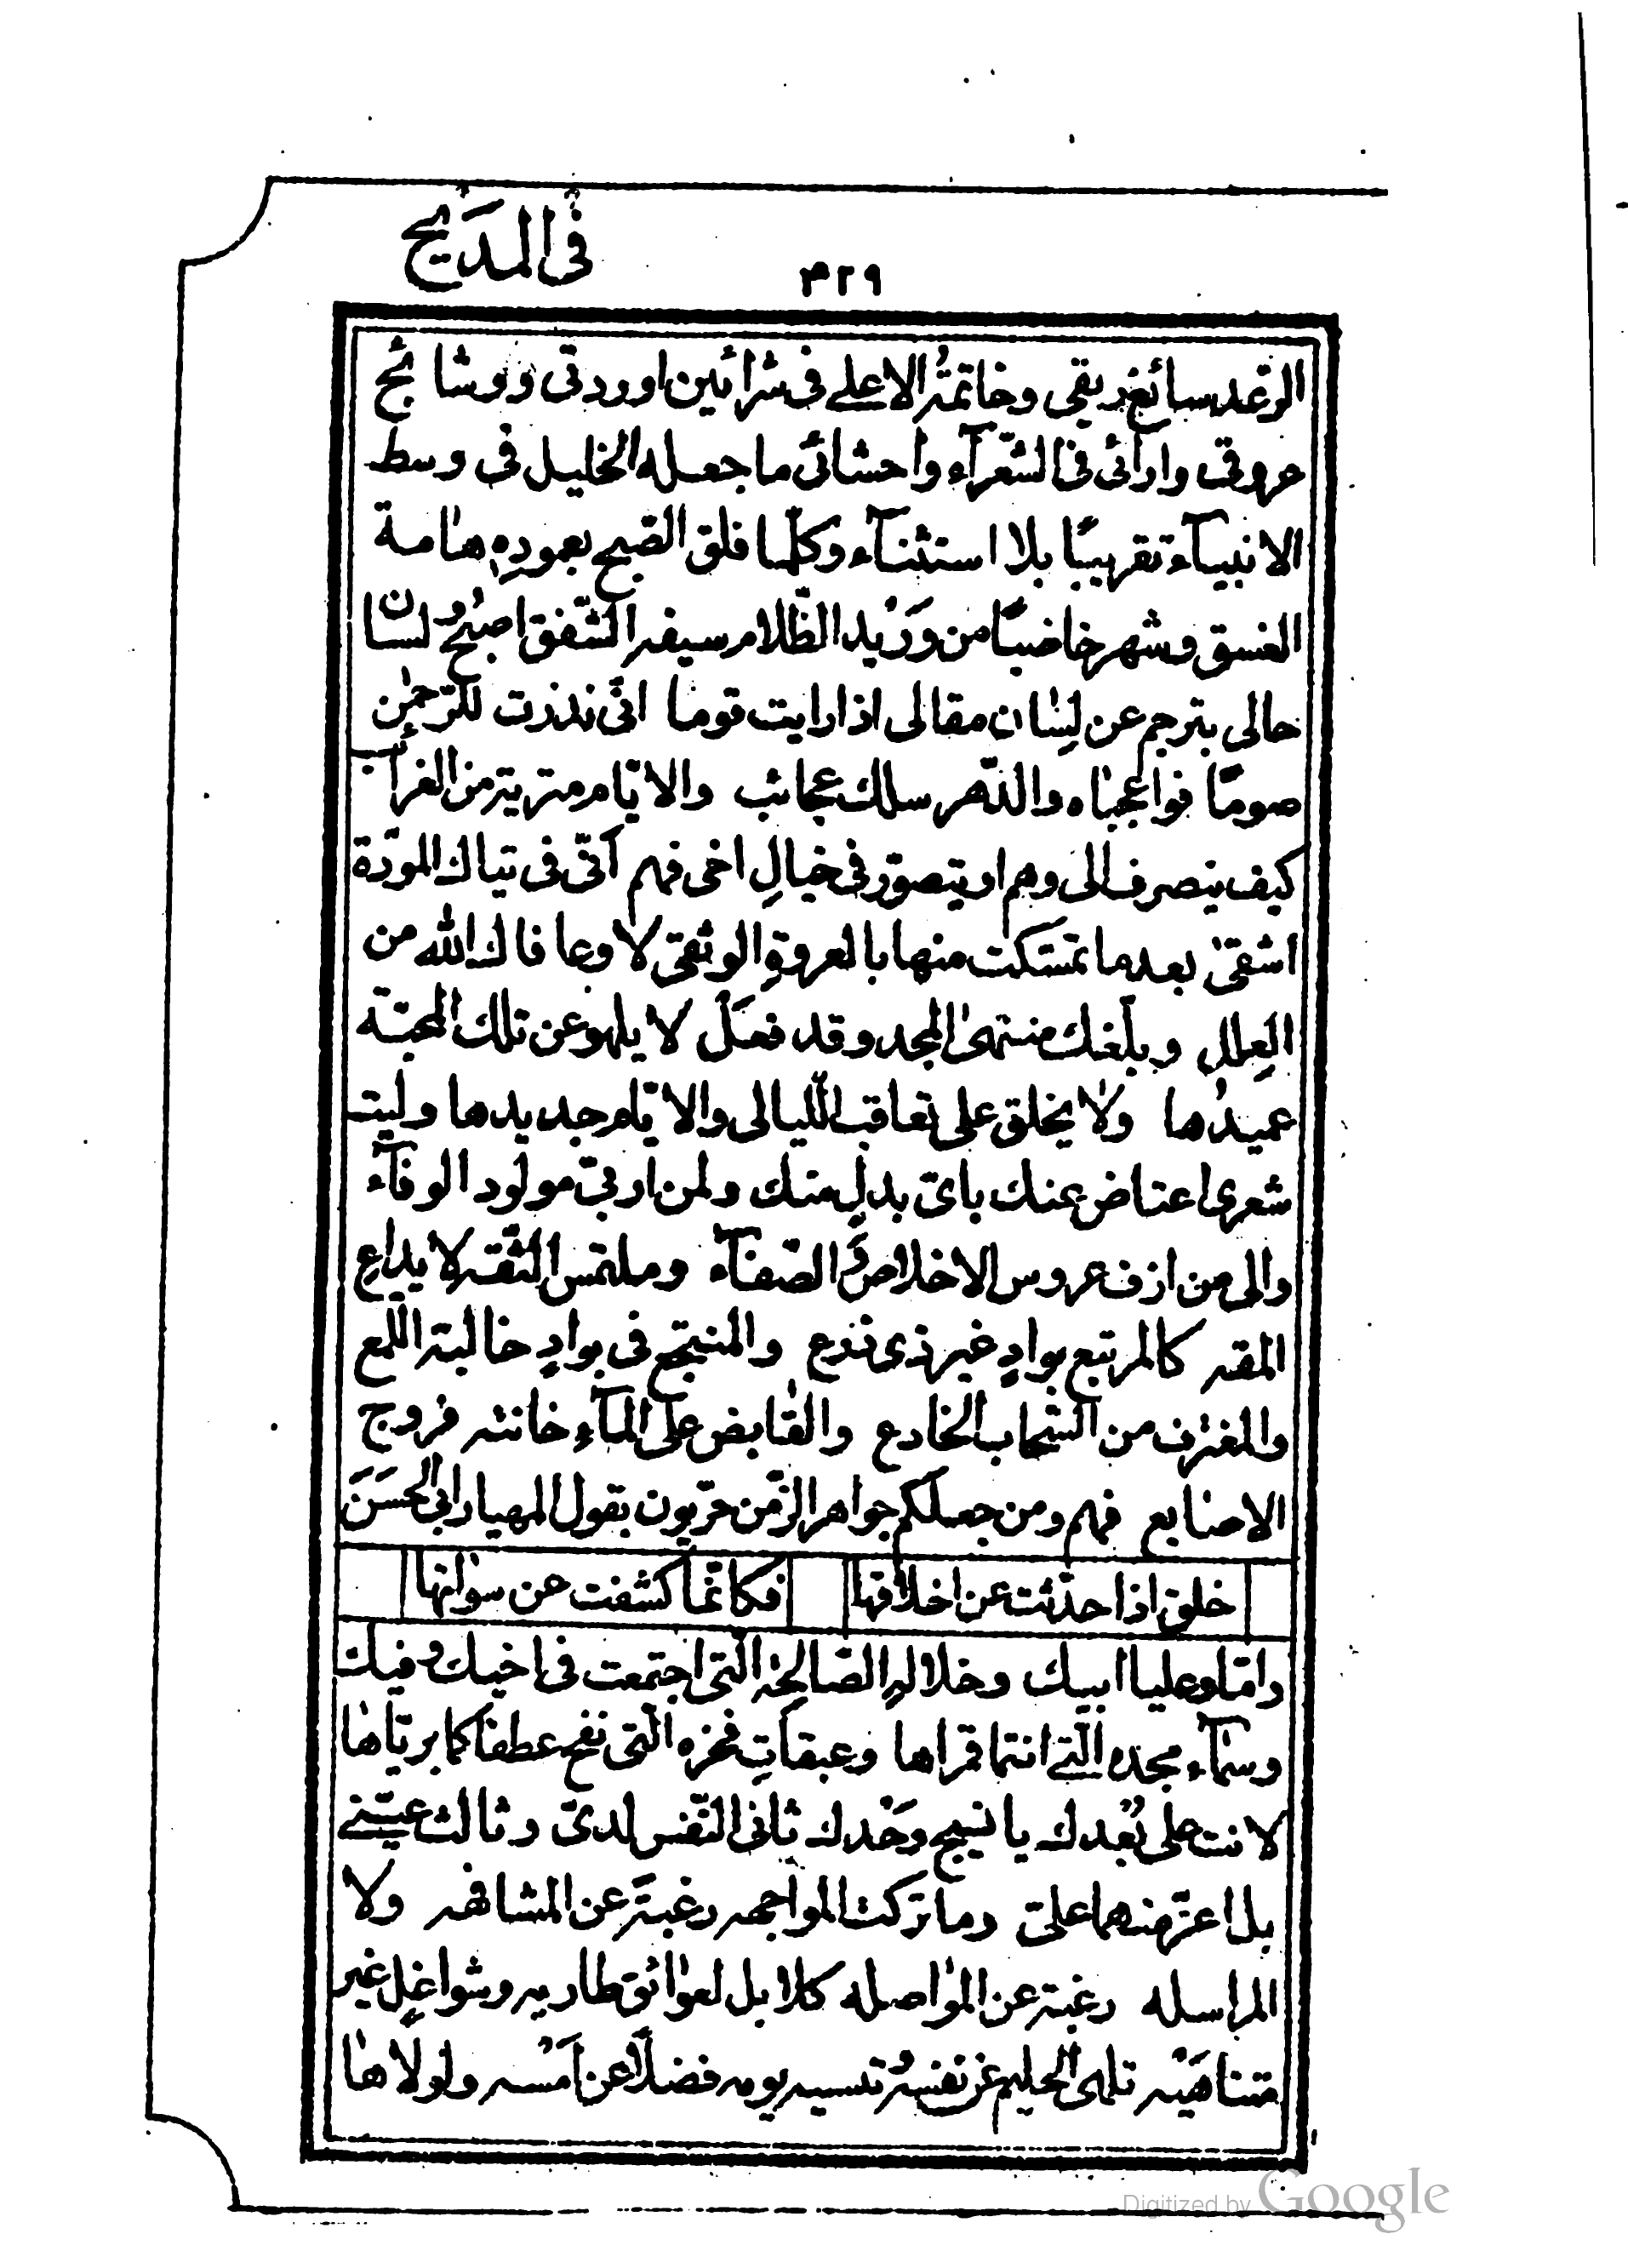 في المديح
٣٢٩
الرغد سائغ ريقي وخاتمة الاعلے في شرائين اوردتي ووشائج
عروقي وارآئي في الشعرآء واحشائي ما جعله الخليل في وسط
الانبيآء تقريبًا بلا استثنآء وكلّما فلق الصبح بعمودِهِ هامة
الغسق وشهر خاضبًا من وَرُيد الظّلام سيفه الشّفق اصبحُ لسان
حالي يترجم عن لِسٰان مقالي اذا رايت قوما انّي نذرت للرّحمٰن
صومًا فواعجبٰاه والدّهر سلك عجائب والايّام متربة من الغرآئب
كيف ينصرف الى وهم او يتصوّر في خيالِ اخي فهم آنّي في تياك المودّة
اشقىٰ بعد ما تمسّكت منها بالعروةِ الوثقىٰ لا وعافاك الله من
العِلل وبلّغك منتهىٰ المجد وقد فعَل لا يلهو عن تلك المحبّة
عميدُها ولا يخلق على تعاقب اللّيالي والايّام جديدها وليت
شعري اعتاض عنك باىّ بدلٍ منك ولمن اربّي مولود الوفآء
والى من ازف عروس الاخلاص و الصّفآء وملتمس الثّقه لا يداعِ
المقه كالمرتبع بوادٍ غير ذي زرع والمنتجع في بوادٍ خالية اللّمع
والمغترف من السّحاب الخادع والقٰابض على المآءِ خانته فروج
الاصابع فهم ومن جعلكم جواهر الزّمن حرّيون بقول المهيار ابي الحسَن
خلق اذا حدّثت عن اخلاقها فكانّما كشفت عن سوٰاتها
وامّا وعليا ابيك وخلالهِ الصّالحة الّتي اجتمعت في اخيك و فيك
وسمآء مجده الّتے انتما قمراها وعبقاتِ فخره الّتي نفح عطفاكما بريّاها
لانت على بُعدك يا نسيج وَحْدك ثاني النّفس لدىّ وثالث عينيّے
بل اعزّ منهما علىّ وما تركت المواجهه رغبةً عن المشافهه ولا
المراسله رغبة عن المواصله كلا بل لعوائق طاريه وشواغلٍ غير
متناهيَه تلهى الحليم عن نفسه و تنسيه يومه فضلًا عن اَمْسه ولولاها